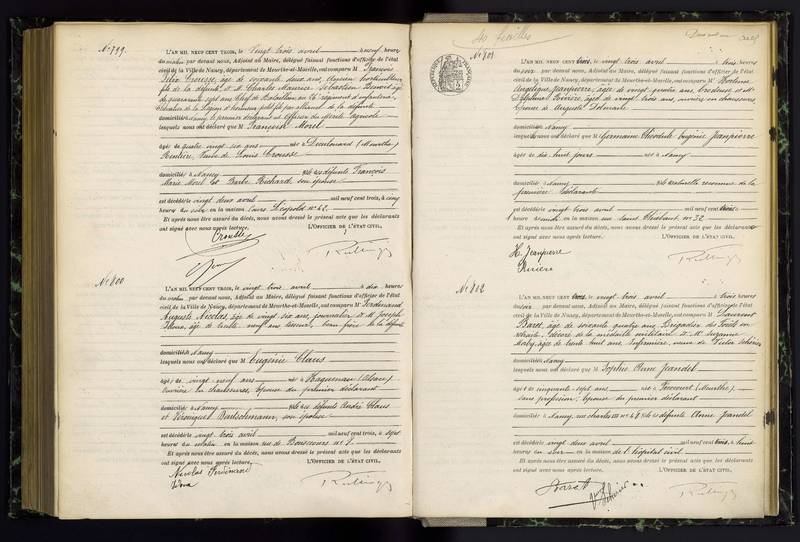 No 799.
L'AN MIL NEUF CENT TROIS, le vingt trois avril à neuf heures
du matin par devant nous, Adjoint au Maire, délégué faisant fonctions d'officier de l'état
civil de la Ville de Nancy, département de Meurthe-et-Moselle, ont comparu M François
Félix Crousse, âgé de soixante deux ans, ancien horticulteur
fils de la défunte et M Charles Maurice Sébastien
âgé de quarante sept ans Chef de Bataillon au régiment d'infanterie
Chevalier de la Légion d'honneur petit fils par alliance de la défunte
domiciliés Nancy le premier déclarant est officier du mérite agricole
lesquels nous ont déclaré que M Françoise Morel
âgée de quatre vingt six ans née à Dieulouard (Meurthe)
Rentière, Veuve de Louis Crousse
domiciliée à Nancy fille des défunts François
Marie Morel et Barbe Richard son épouse
est décédée le vingt deux avril mil neuf cent trois, à cinq
heures du soir en la maison Cours Léopold no 42.
Et après nous être assuré du décès, nous avons dressé le présent acte que les déclarants
ont signé avec nous après lecture. L'OFFICIER DE L'ÉTAT CIVIL,
Crousse
No 800
L'AN MIL NEUF CENT TROIS, le vingt trois avril à dix heures
du matin par devant nous, Adjoint au Maire, délégué faisant fonctions d'officier de l'état
civil de la Ville de Nancy, département de Meurthe-et-Moselle, ont comparu Mrs Ferdinand
Auguste Nicolas, âgé de vingt six ans, journalier et M Joseph
âgé de trente neuf ans beau frère de la défunte
domiciliés à Nancy
lesquels nous ont déclaré que M Eugénie Claus
âgée de vingt neuf ans née à Haguenau (Alsace)
ouvrière en chaussures, épouse du premier déclarant
domiciliée à Nancy fille des défunts André Claus
et Véronique son épouse
est décédée le vingt trois avril mil neuf cent trois, à sept
heures du matin en la maison rue de Bonsecours no 9.
Et après nous être assuré du décès, nous avons dressé le présent acte que les déclarants
ont signé avec nous après lecture. L'OFFICIER DE L'ÉTAT CIVIL,
Nicolas Ferdinand
No 801
L'AN MIL NEUF CENT trois, le vingt trois avril à trois heures
du soir par devant nous, Adjoint au Maire, délégué faisant fonctions d'officier de l'état
civil de la Ville de Nancy, département de Meurthe-et-Moselle, ont comparu M Hortense
Angélique Jeanpierre, âgée de vingt quatre ans, brodeuse et M
Delphine Rivière, âgée de vingt trois ans, ouvrière en chaussures
épouse de Auguste
domiciliés Nancy
lesquels nous ont déclaré que M Germaine Théodule Eugénie Jeanpierre
âgée de dix huit jours née à Nancy
domiciliée à Nancy fille naturelle reconnue de la
première déclarante
est décédée le vingt trois avril mil neuf cent trois à
heures en la maison rue Saint Thiébaut no 32
Et après nous être assuré du décès, nous avons dressé le présent acte que les déclarantes
ont signé avec nous après lecture. L'OFFICIER DE L'ÉTAT CIVIL,
H. Jeanpierre
Rivière
No 802
L'AN MIL NEUF CENT trois, le vingt trois avril à trois heures
du soir par devant nous, Adjoint au Maire, délégué faisant fonctions d'officier de l'état
civil de la Ville de Nancy, département de Meurthe-et-Moselle, ont comparu M Laurent
âgé de soixante quatre ans, Brigadier des Forêts en
retraite, décoré de la médaille militaire et M Suzanne
âgée de trente huit ans Infirmière, veuve de Victor
domiciliés Nancy
lesquels nous ont déclaré que M Sophie Anne Jeandel
âgée de cinquante sept ans née à (Meurthe)
sans profession, épouse du premier déclarant
domiciliée à Nancy, rue Charles III no 48 fille de défunte Anne Jeandel
est décédée le vingt deux avril mil neuf cent trois, à huit
heures du soir en la maison de l'hôpital civil
Et après nous être assuré du décès, nous avons dressé le présent acte que les déclarants
ont signé avec nous après lecture. L'OFFICIER DE L'ÉTAT CIVIL,